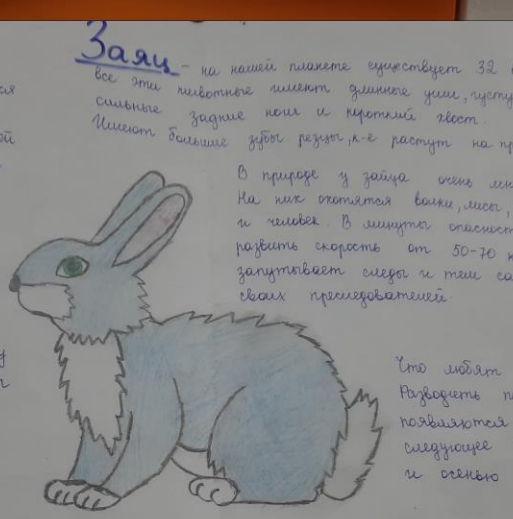 Заяц - на нашей планете существует 32
все эти животные имеют длинные уши, густу
сильные задние ноги и короткий хвост.
Имеют большие зубы резцы, к-е растут на пр
ся
ой
В природе у зайца очень мн
На них охотятся волки, лисы,
и человек. В минуты опасност
развить скорость от 50-70 к
запутывает следы и тем са
своих преследователей.
у
Что любят
Разводить п
появляются
следующее
и осенью